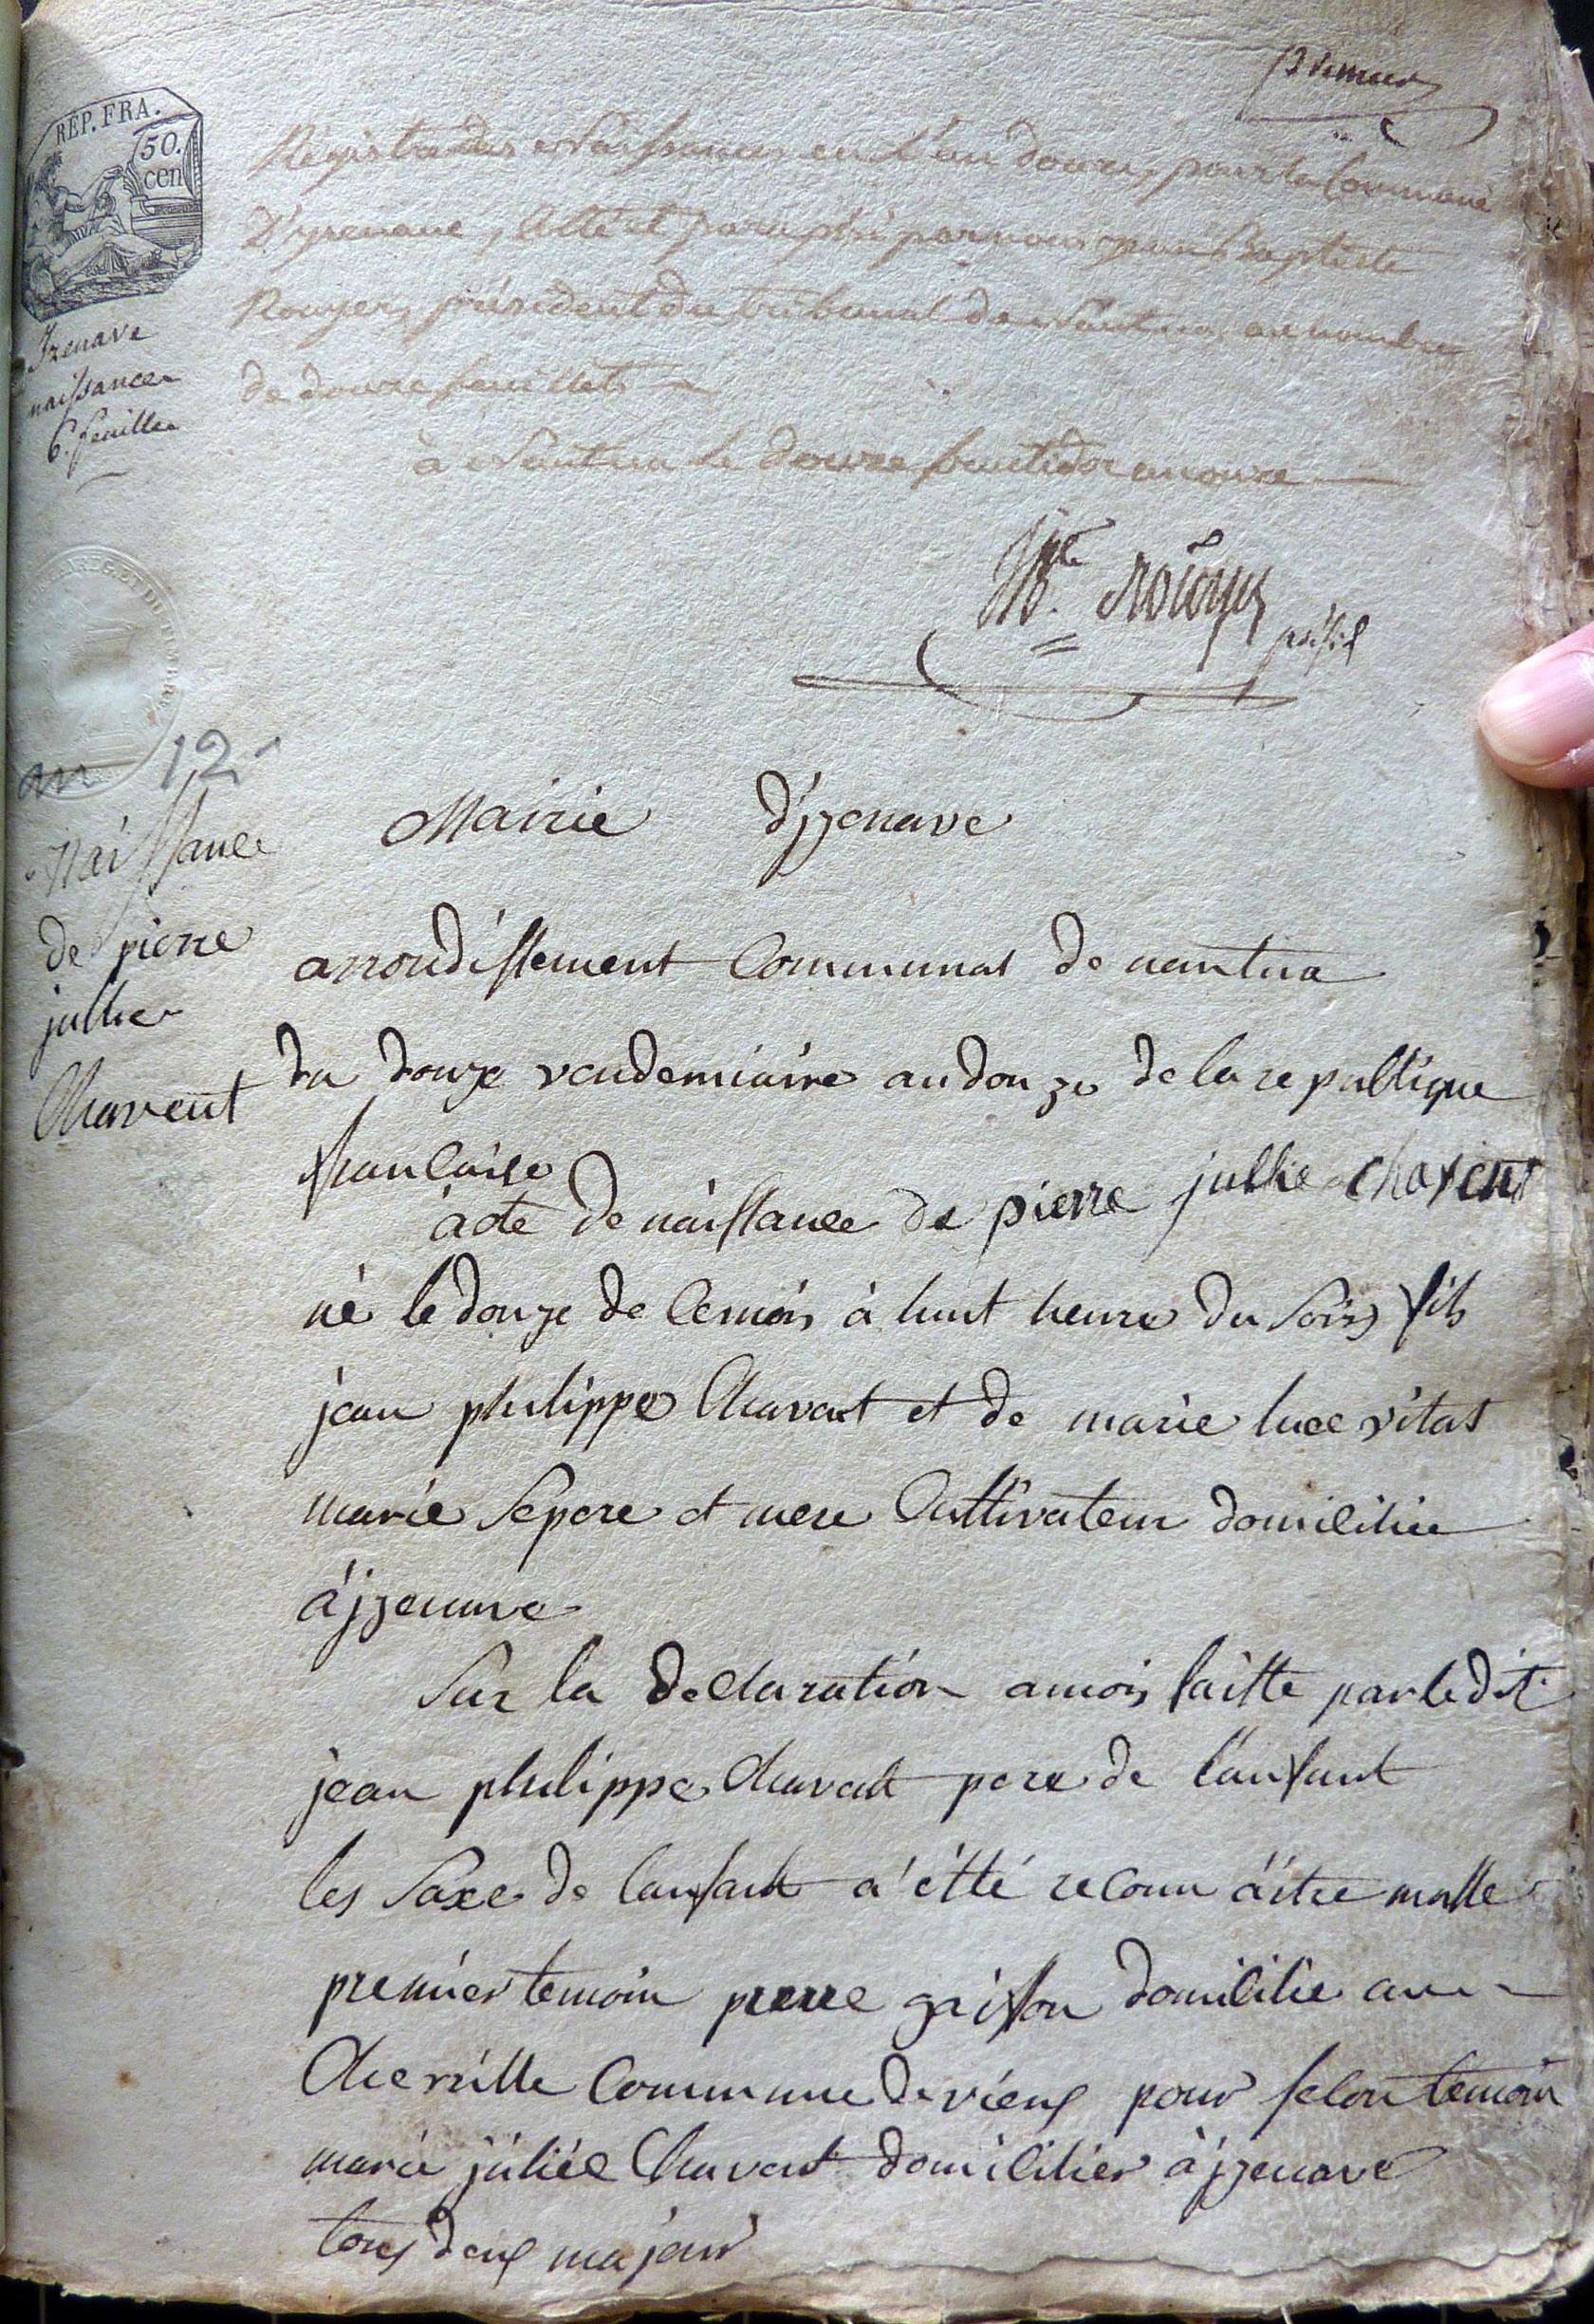 premier
REP. FRA.
50.
cen
Registre des Naissances en l'an douze, pour la Commune
D'yzenave, Cotté et paraphé par nous jean Baptiste
Rouyer, président du tribunal de Nantua, au nombre
de douze feuillets
à Nantua le douze fructidor an onze
Izenave
naissances
6. feuilles
JB.te Rouyer
présid
an 12
Naissance
de pierre
jullie
Chavent
Mairie d'jzenave
arrondissement Communal de nantua
du douze vendemiaire an douze de la republique
francaise
acte de naissance de pierre jullie chavent
né le douze de ce mois à huit heure du soir fils
jean philippe Chavent et de marie luce vitat
marie se pere et mere Cultivateur domicilie
à jzenave
Sur la declaration a mois faitte par le dit
jean philippe Chavent pere de l'anfant
les saxe de lanfant a étté reconu aitre malle
premier temoin pierre domicilie au
Chevrille Commune de vieux pour secon temoin
marie juliée Chavent domicilier à jzenave
tous deux majour